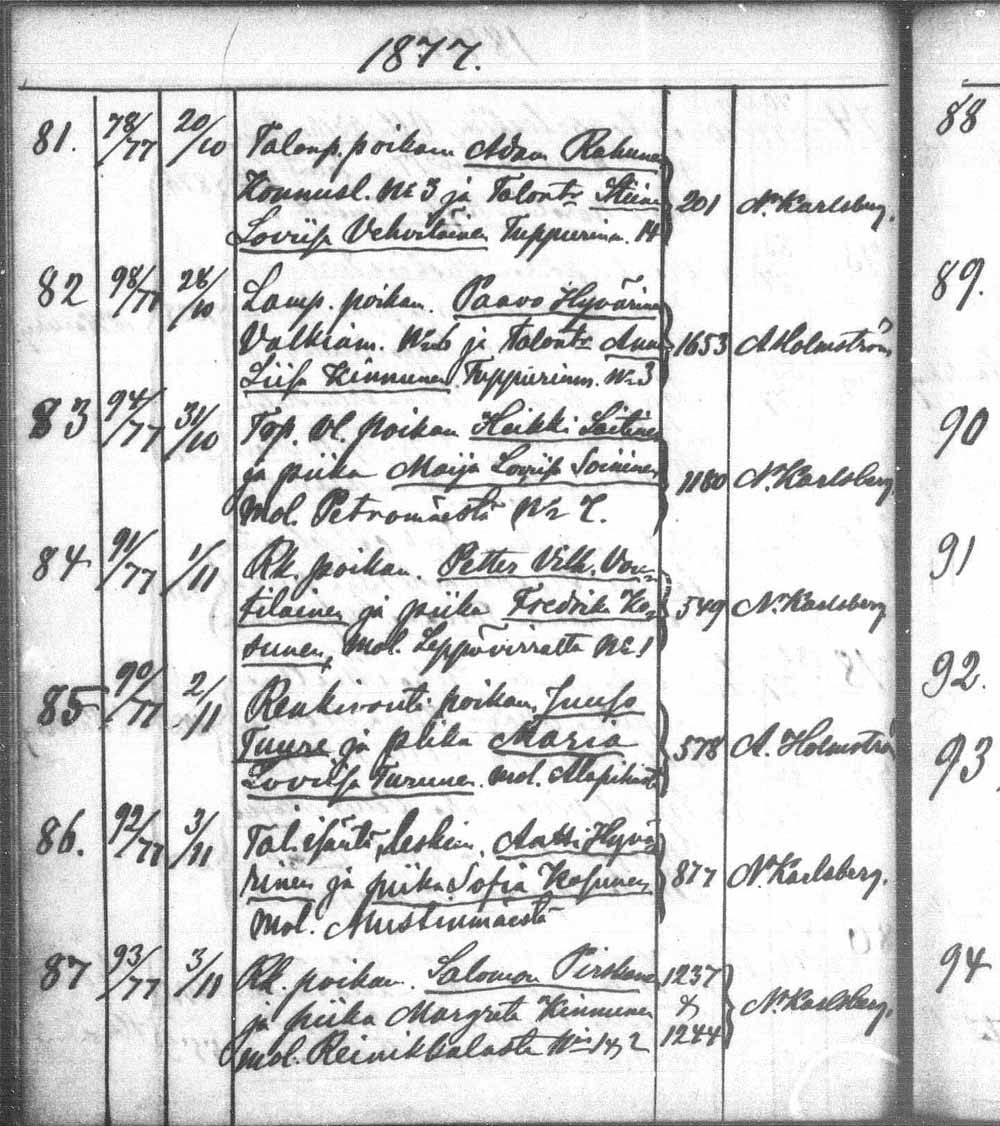 1877.
81. 78/77 20/10 Talonp. poikam. Adam Rahunen
Konnusl. No 3 ja Talontr Stiina 201 N. Karlsberg.
Loviisa Vehviläinen Tuppurinm. 14
82 98/77 28/10 Lamp. poikam. Paavo Hyvärinen
Valkiam. No 6 ja Talontr Anna 1653 A. Holmström
Liisa Kinnunen Tuppurinm. No 3
83 94/77 31/10 Top. vl. poikam Heikki Laitinen
ja piika Maija Loviisa Soininen 1180 N. Karlsberg.
mol. Petromäestä No 7.
84 91/77 1/11 Rk. poikam. Petter Vilh. Vou-
tilainen ja piika Fredrika Ko- 549 N. Karlsberg
sunen, mol. Leppävirralta No 1
85 90/77 2/11 Renkivouti poikam. Juuso
Tuure ja piika Maria 578 A. Holmström
Loviisa Turunen. mol.
86. 92/77 3/11 Tal. isäntä, leskim. Antti Hyvä-
rinen ja piika Sofia Kosunen 877 N. Karlsberg.
mol. Mustinmäestä
87 93/77 3/11 Rk. poikam. Salomon Pirskanen 1237
ja piika Margreta Kinnunen & N. Karlsberg.
mol. Reinikkalasta No 1 & 2 1244
88
89.
90
91
92.
93
94